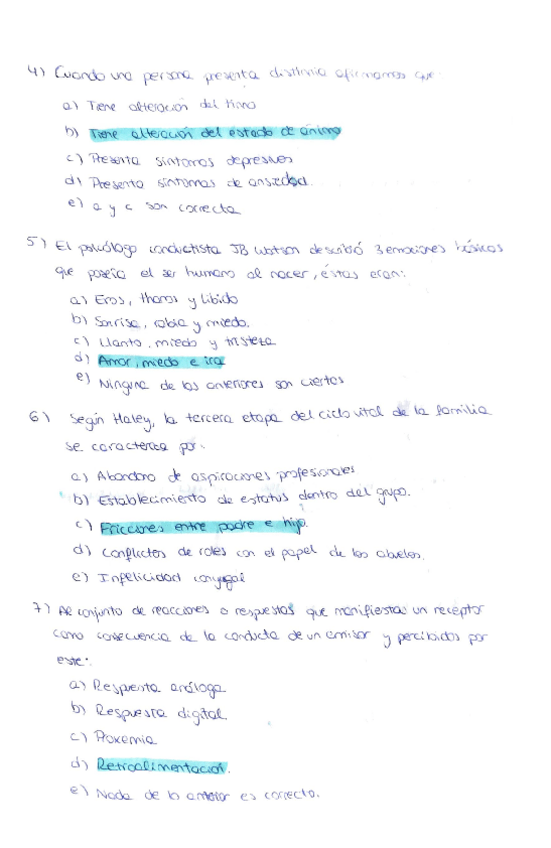 4) Cuando una persona presenta distimia afirmamos que:
a) Tiene alteración del timo
b) Tiene alteración del estado de ánimo
c) Presenta síntomas depresivos
d) Presenta síntomas de ansiedad.
e) a y c son correcta
5) El psicólogo conductista JB Watson describió 3 emociones básicas
que poseía el ser humano al nacer, éstas eran:
a) Eros, thanos y libido
b) Sonrisa, rabia y miedo.
c) Llanto, miedo y tristeza
d) Amor, miedo e ira
e) Ninguna de las anteriores son ciertas
6) Según Haley, la tercera etapa del ciclo vital de la familia
se caracteriza por:
a) Abandono de aspiraciones profesionales
b) Establecimiento de estatus dentro del grupo.
c) Fricciones entre padre e hijo.
d) Conflictos de roles con el papel de los abuelos.
e) Infelicidad conyugal
7) Al conjunto de reacciones o respuestas que manifiestas un receptor
como consecuencia de la conducta de un emisor y percibidas por
este:
a) Respuesta análoga
b) Respuesta digital
c) Proxemia
d) Retroalimentación.
e) Nada de lo anterior es correcto.